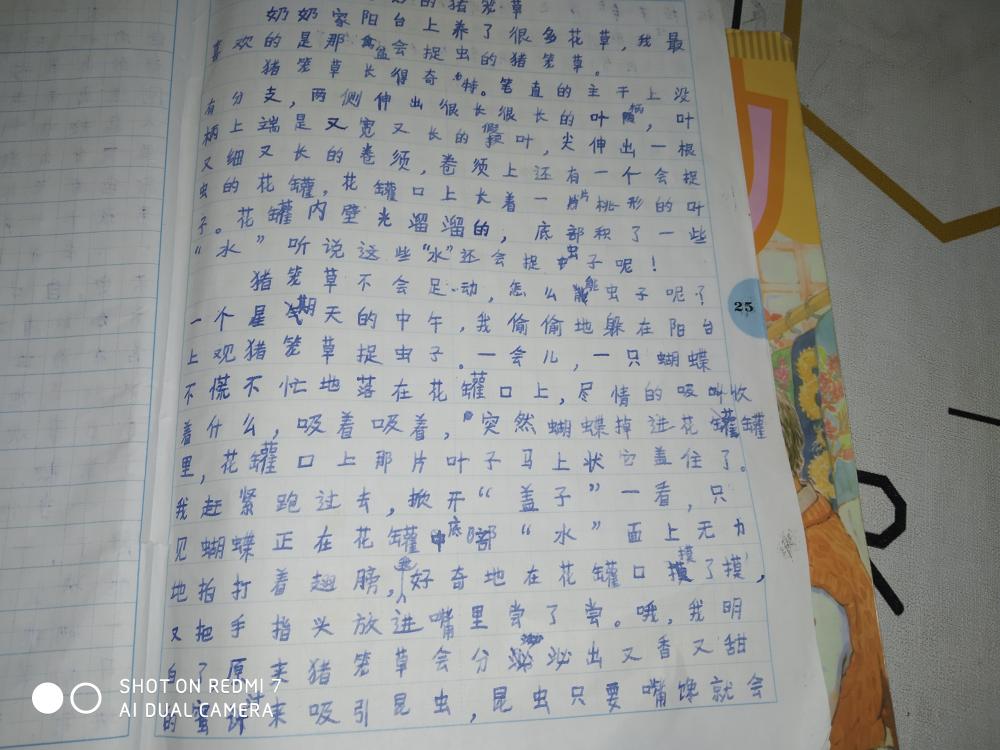 的猪笼草
奶奶家阳台上养了很多花草,我最
喜欢的是那盆会捉虫的猪笼草。
猪笼草长得奇特。笔直的主干上没
有分支,两侧伸出很长很长的叶柄,叶
柄上端是又宽又长的假叶,尖伸出一根
又细又长的卷须,卷须上还有一个会捉
虫的花罐,花罐口上长着一片桃形的叶
子。花罐内壁光溜溜的,底部积了一些
“水”听说这些“水”还会捉虫子呢!
猪笼草不会足动,怎么能虫子呢?
一个星期天的中午,我偷偷地躲在阳台
上观猪笼草捉虫子。一会儿,一只蝴蝶
不慌不忙地落在花罐口上,尽情的吸收
着什么,吸着吸着,突然蝴蝶掉进花罐
里,花罐口上那片叶子马上状它盖住了。
我赶紧跑过去,掀开“盖子”一看,只
见蝴蝶正在花罐底部“水”面上无力
地拍打着翅膀,好奇地在花罐口摸了摸,
又把手指头放进嘴里尝了尝。哦,我明
白了原来猪笼草会分泌出又香又甜
的蜜来吸引昆虫,昆虫只要嘴馋就会
25
SHOT ON REDMI 7
AI DUAL CAMERA